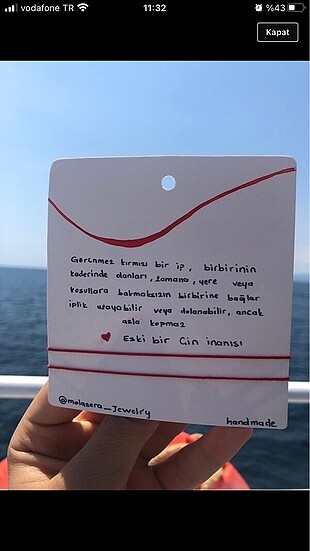 vodafone TR
11:32
%43
Kapat
Görünmez kırmızı bir ip, birbirinin
kaderinde olanları, zamana, yere veya
koşullara bakmaksızın birbirine bağlar
iplik uzayabilir veya dolanabilir, ancak
asla kopmaz
Eski bir Çin inanışı
@molazera_Jewelry
handmade